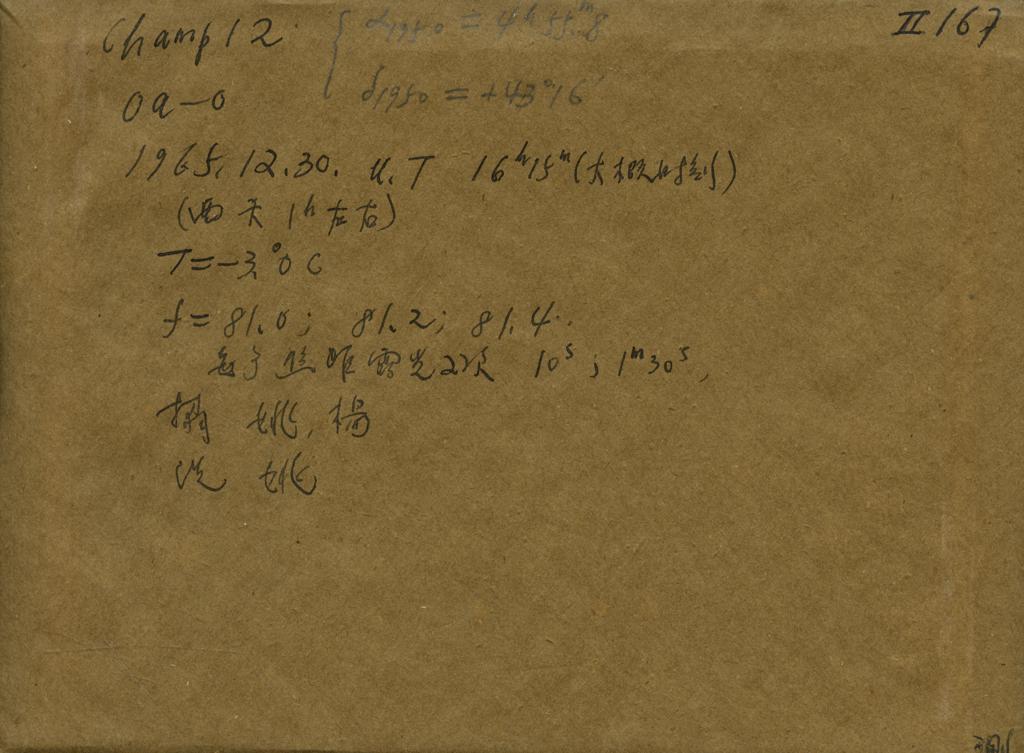 Champ 12
{ α1950 = 4h 55m.8
δ1950 = +43°16'
II 167
Oa-O
1965.12.30. U.T 16h15m(大概时刻)
(西天 1h 左右)
T=-3.°0 C
f= 81.0; 81.2; 81.4.
每个焦距露光2次 10s; 1m30s,
摄 姚, 杨
洗 姚
测